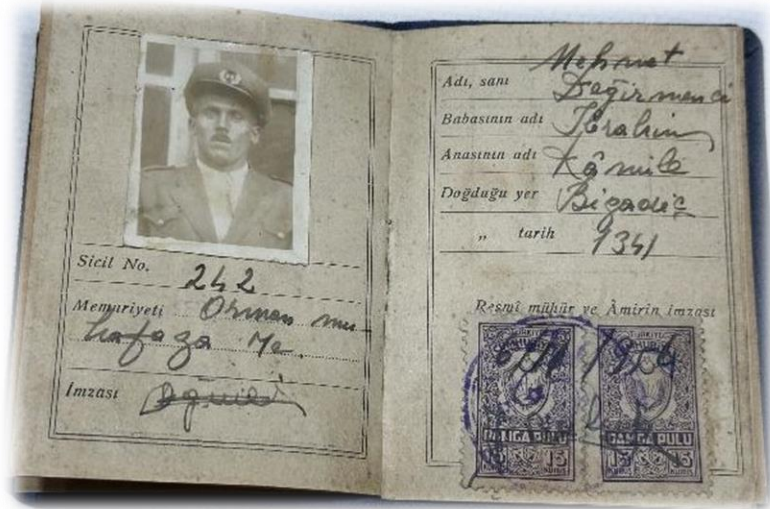 Sicil No. 242
Memuriyeti Orman mu-
hafaza Me.
İmzası
Adı, sanı Mehmet
Değirmenci
Babasının adı İbrahim
Anasının adı Kâmile
Doğduğu yer Bigadiç
„ tarih 1341
Resmî mühür ve Âmirin imzası
DAMGA PULU DAMGA PULU
15 15 15